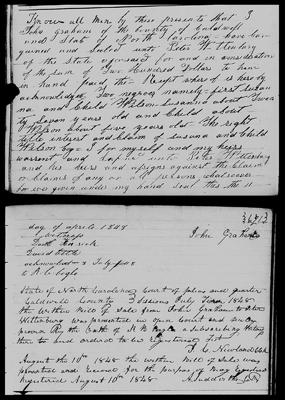 Know all men by these presents that I
John Graham of the County of Caldwell
and State of North Carolina have bar
gained and Sold unto Peter W
of the State aforesaid for and in consideration
of the sum of Two Hundred Dollars to him
in hand paid the Receipt where of is hereby
acknowledged Two negroes namely first Susan
na and Child Wilson Susanna about Twen
ty Seven years old and Child about
Wilson about five years old the right
title interest and claim of Susana and Child
Wilson by I for myself and my heirs
warrent and unto Peter
and his heirs and assigns against the Claim
or claims of any or all persons whatsoever
given under my hand Seal this the 11
day of aprile 1848
John Graham
acknowd
to R. C. Cogle
State of North Carolina Court of pleas and quarter
Caldwell County Sessions July Term 1848
the within Bill of Sale from John Graham to Peter
was presented in open Court and duly
proven By the Oath of a subscribing Witness
there to and ordered to be Registered Test
Clk
August the 10th 1848 the within Bill of Sale was
presented and received for the purpose of being Registered
Registered August 10th 1848